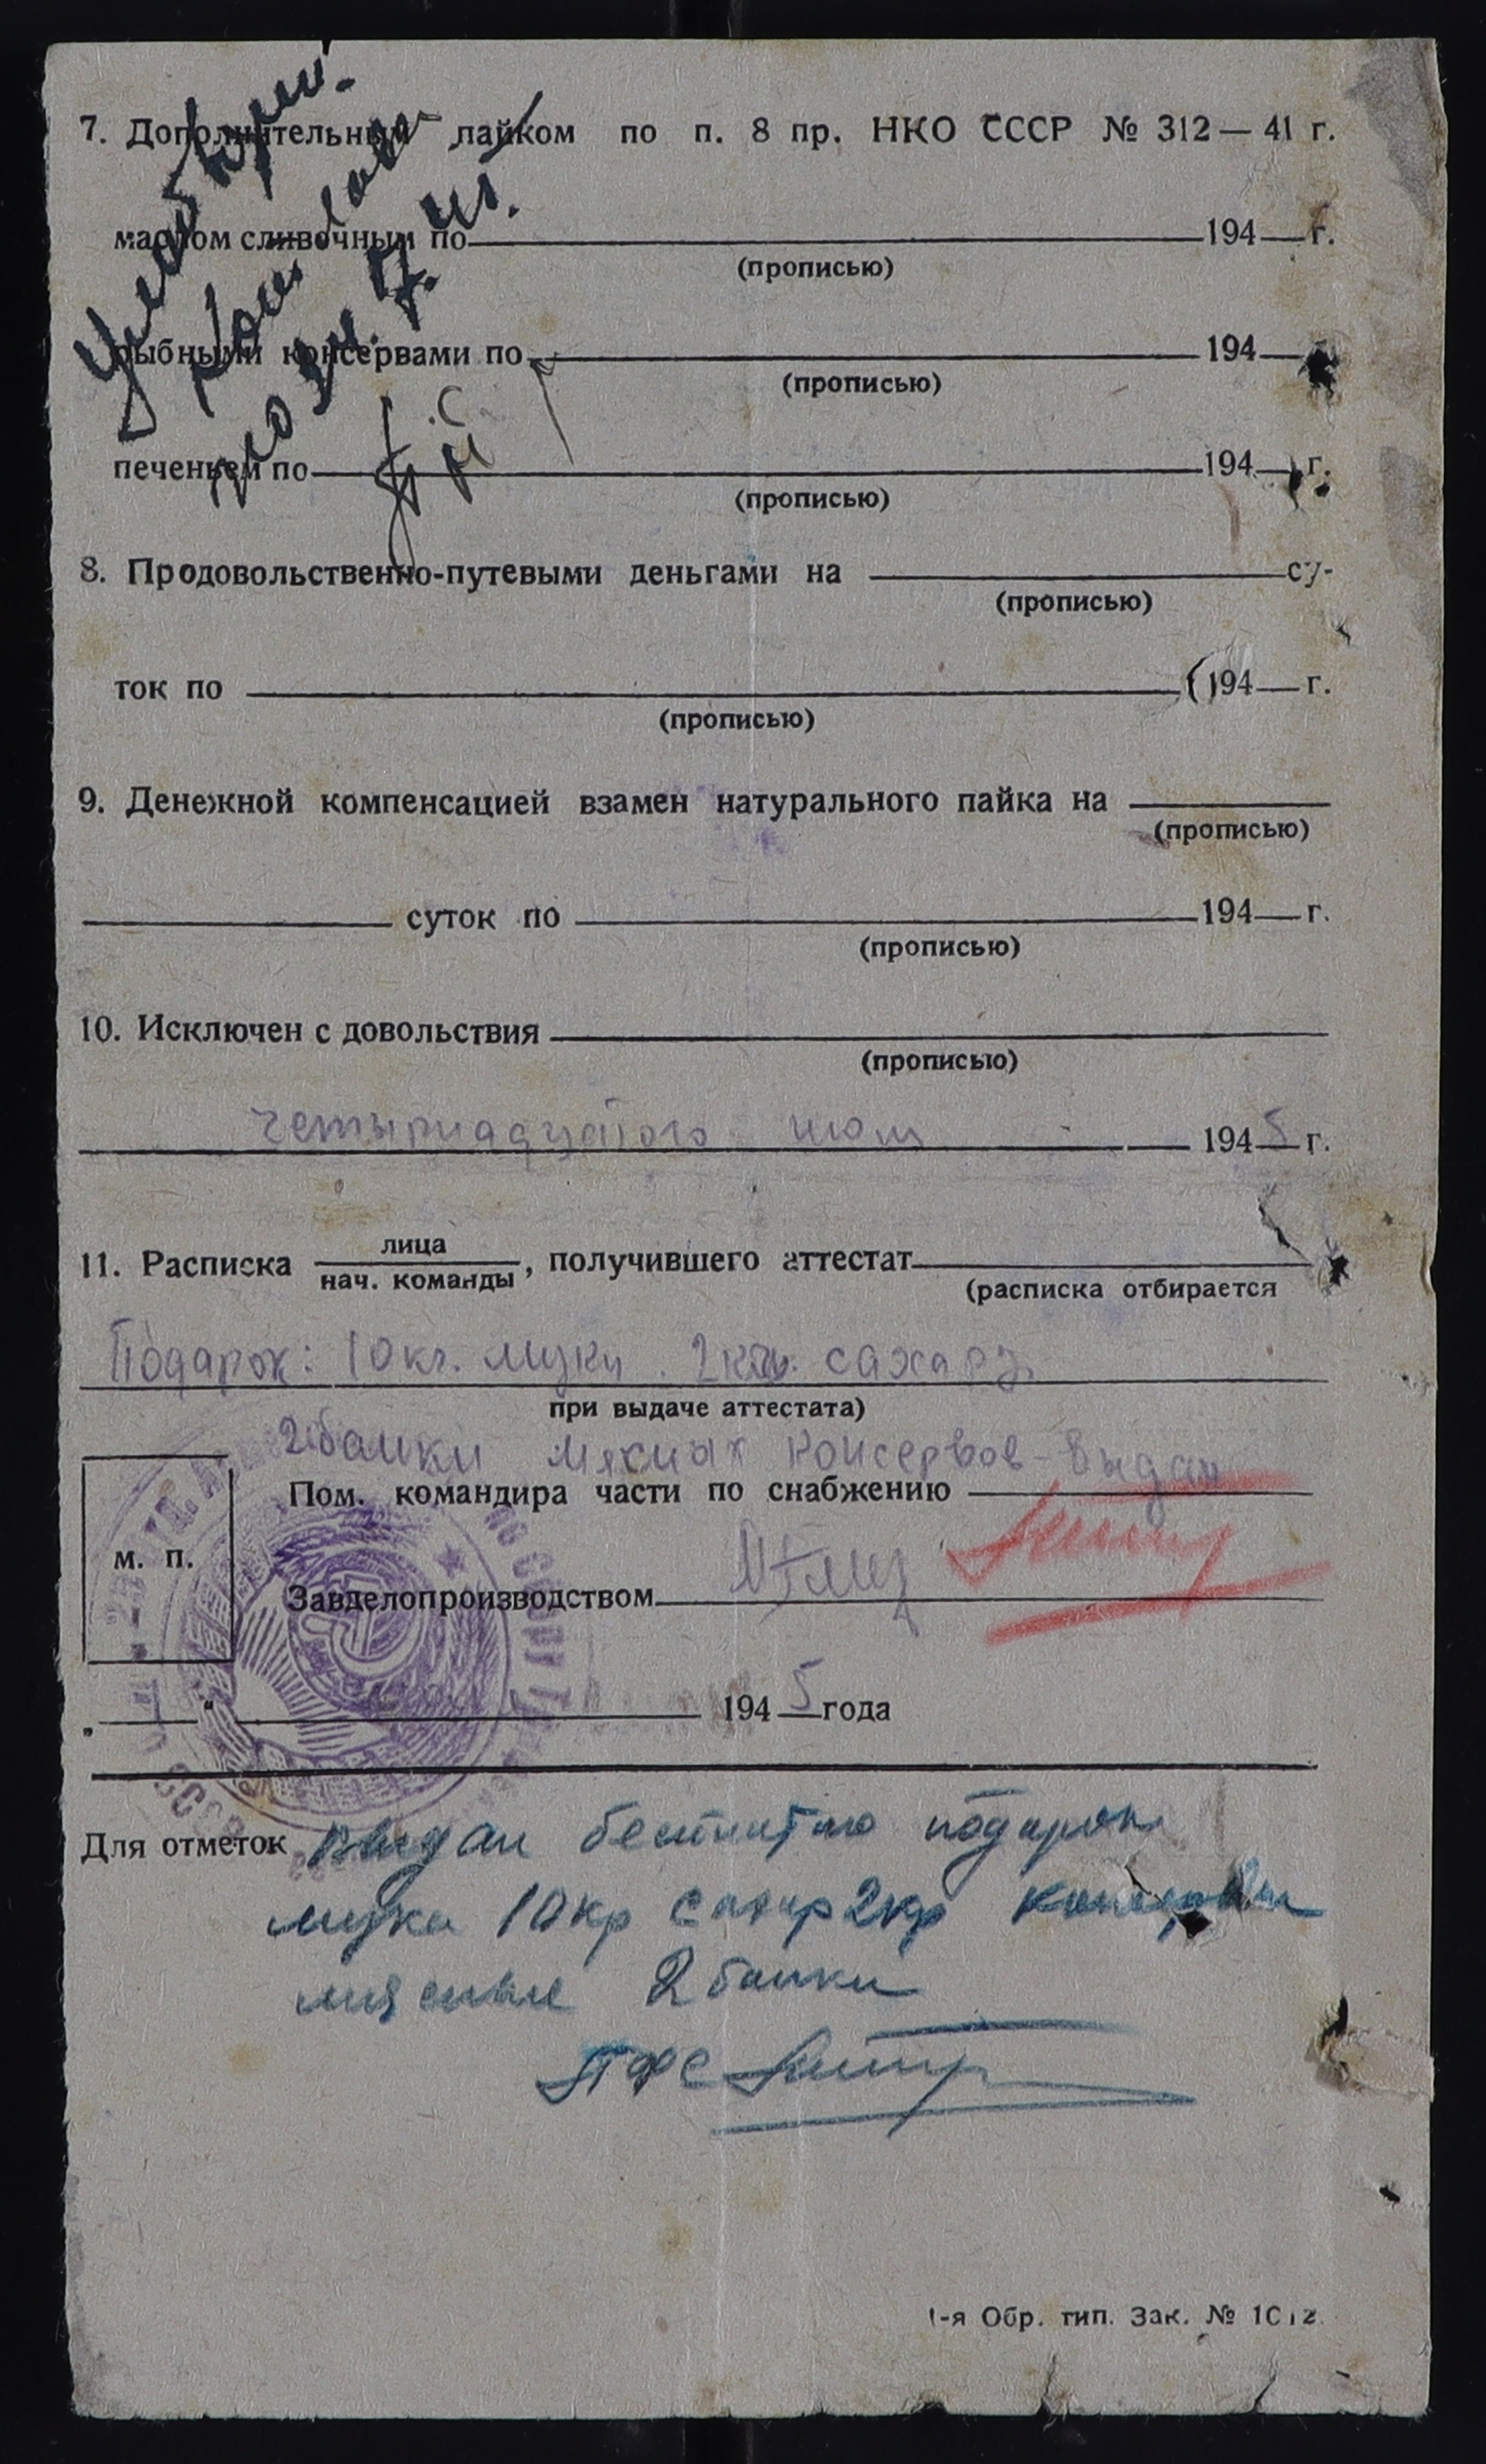 7. Дополнительный пайком по п. 8 пр. НКО СССР № 312—41 г.
маслом сливочным по 194 г.
(прописью)
рыбными консервами по 194
(прописью)
печеньем по 194 г.
(прописью)
8. Продовольственно-путевыми деньгами на су-
(прописью)
ток по 194 г.
(прописью)
9. Денежной компенсацией взамен натурального пайка на
(прописью)
суток по 194 г.
(прописью)
10. Исключен с довольствия
(прописью)
четырнадцатого 1945 г.
11. Расписка лица
нач. команды, получившего аттестат
(расписка отбирается
Подарок: 10 кг. муки. 2 сахару.
при выдаче аттестата)
2 банки мясных консервов - выдан
Пом. командира части по снабжению
м. п.
Завделопроизводством
„ “ 1945 года
Для отметок Выдан подарок
мука 10 кг сахар 2 кг консервы
мясные 2 банки
ПФС
1-я Обр. тип. Зак. № 1012